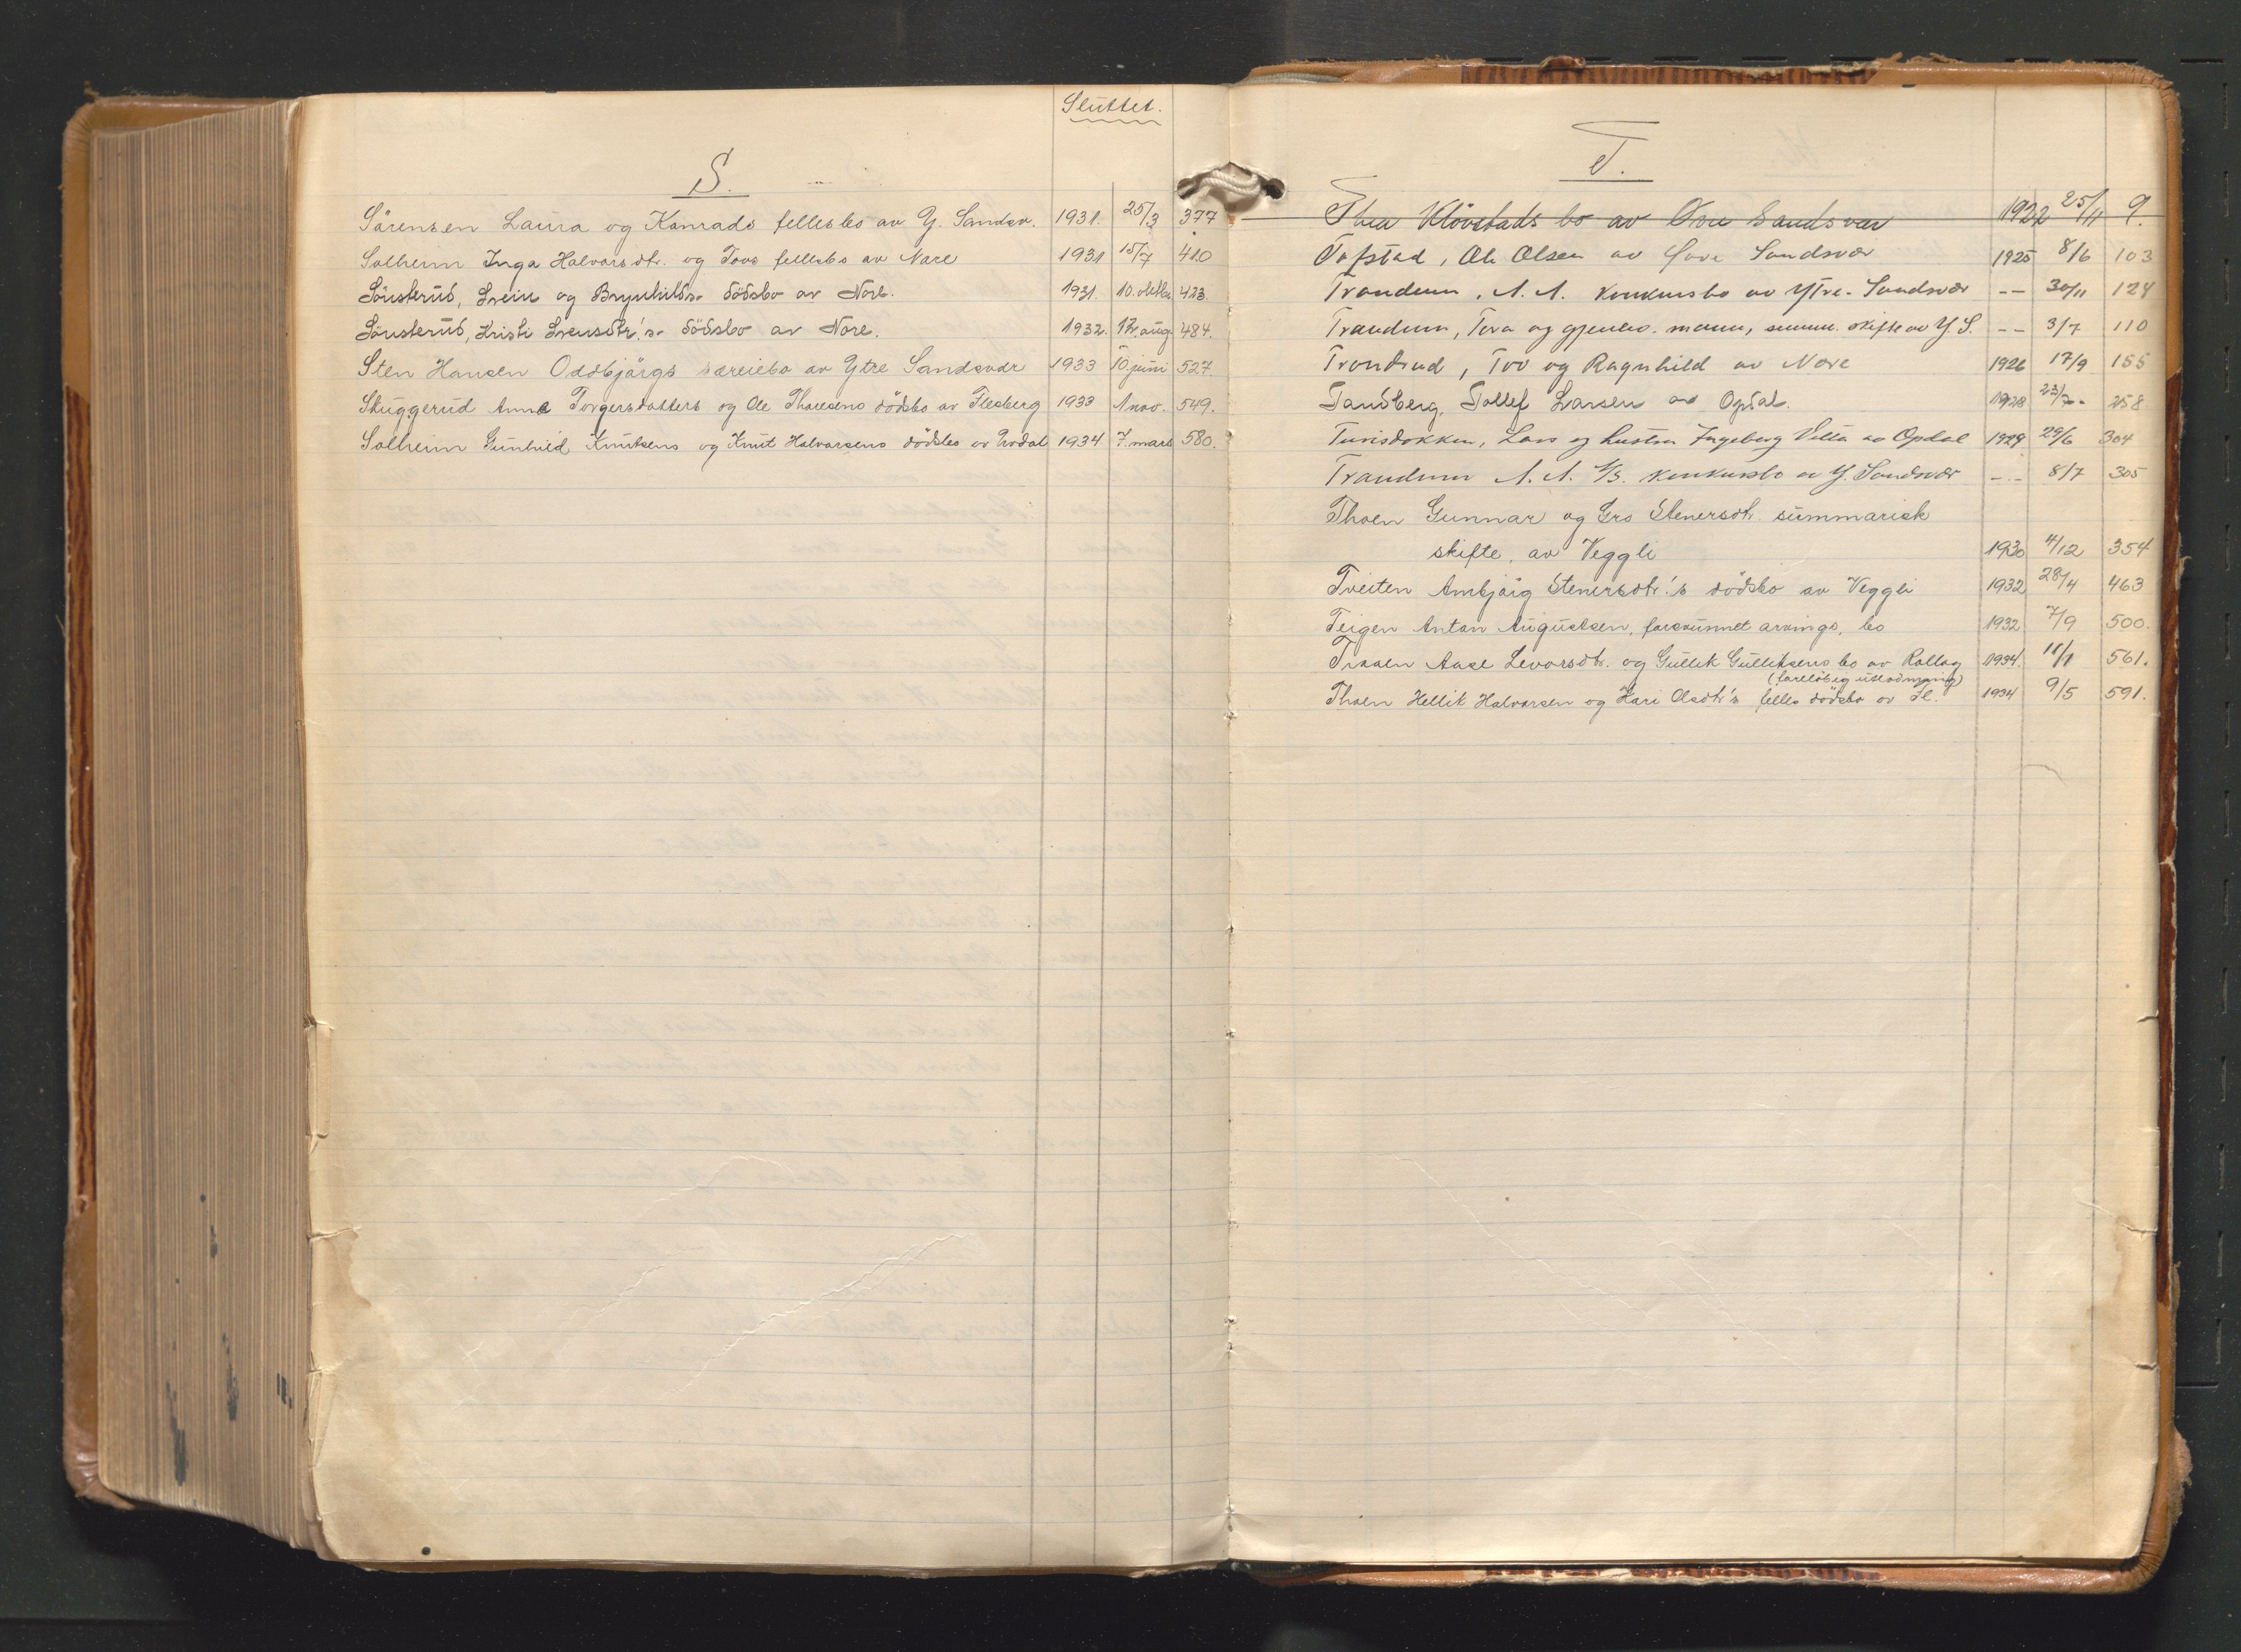 Sluttet.
S.
Sörensen Laura og Konrads fellesbo av Y. Sandsv. 1931. 25/3 377
Solheim Inga Halvorsdtr. og Tovs fellesbo av Nore 1931 15/7 410
Sönsterud, Svein og Brynhilds dödsbo av Nore. 1931. 10. oktbr. 423.
Sönsterud, Kristi Svensdtr.'s dödsbo av Nore. 1932. 12. aug. 484.
Sten Hansen Oddbjörgs særeiebo av Ytre Sandsvær 1933 10. juni 527.
Skuggerud Anne Torgersdatters og Ole Thoresens dödsbo av Flesberg 1933 1 nov. 549.
Solheim Gunhild Knutsens og Knut Halvorsens dödsbo av Uvdal 1934. 7. mars 580.
T.
Thea Klövstads bo av Övre Sandsvær 1922 25/11 9.
Tofstad, Ole Olsen av Övre Sandsvær 1925 8/6 103
Trandum, A. A. konkursbo av Ytre-Sandsvær -- 30/11 124
Trandum, Tova og gjenlev. mann, summ. skifte av Y. S. -- 3/7 110
Trondrud, Tov og Ragnhild av Nore 1926 17/9 155
Tandberg, Tollef Larsen av Opdal. 1928 23/7 258
Turisdokken, Lars og hustru Ingeborg Villa av Opdal 1929 29/6 304
Trandum A. A. A/S. konkursbo av Y. Sandsvær -.- 8/7 305
Thoen Gunnar og Gro Stenersdtr. summarisk
skifte, av Veggli 1930 4/12 354
Tveiten Ambjörg Stenersdtr.'s dödsbo av Veggli 1932 28/4 463
Teigen Anton Augustsen, forsvunnet arvings, bo 1932 7/9 500.
Traaen Aase Levorsdtr. og Gullik Gulliksens bo av Rollag 1934. 11/1 561.
(foreløbig utlodning)
Thoen Hellik Halvorsen og Kari Olsdtr's felles dödsbo av Fl. 1934 9/5 591.